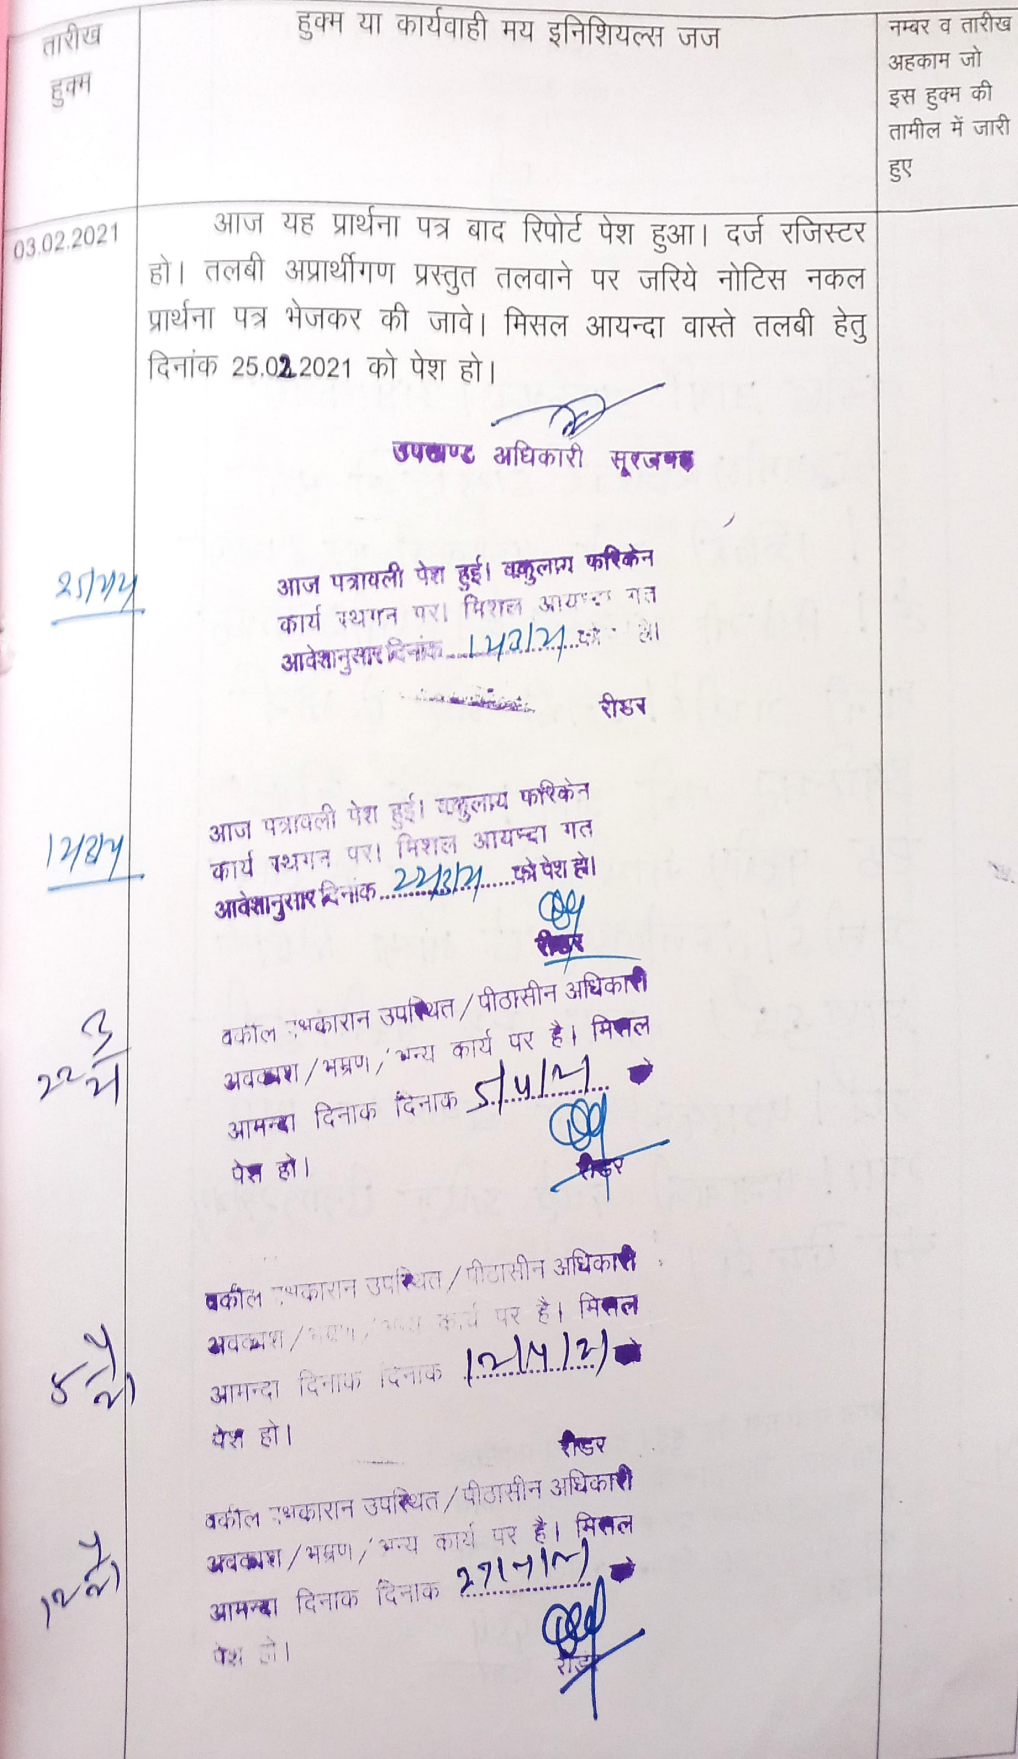 तारीख
हुक्म
हुक्म या कार्यवाही मय इनिशियल्स जज
नम्बर व तारीख
अहकाम जो
इस हुक्म की
तामील में जारी
हुए
03.02.2021
आज यह प्रार्थना पत्र बाद रिपोर्ट पेश हुआ। दर्ज रजिस्टर
हो। तलबी अप्रार्थीगण प्रस्तुत तलवाने पर जरिये नोटिस नकल
प्रार्थना पत्र भेजकर की जावे। मिसल आयन्दा वास्ते तलबी हेतु
दिनांक 25.02.2021 को पेश हो।
उपखण्ड अधिकारी सूरजगढ
आज पत्रावली पेश हुई। वकुलाय फरिकेन
कार्य स्थगन पर। मिशल आयन्दा गत
आदेशानुसार दिनांक को हो।
रीडर
आज पत्रावली पेश हुई। वकुलाय फरिकेन
कार्य स्थगन पर। मिशल आयन्दा गत
आदेशानुसार दिनांक को पेश हो।
रीडर
वकील उपस्थित/पीठासीन अधिकारी
22 3/21
अवकाश/भम्रण/अन्य कार्य पर है। मिसल
आमन्दा दिनाक दिनाक 5/4/21 को
पेश हो।
रीडर
वकील उपस्थित/पीठासीन अधिकारी
अवकाश/भम्रण/अन्य कार्य पर है। मिसल
5 4/21
आमन्दा दिनाक दिनाक 12/4/21 को
पेश हो।
रीडर
वकील उपस्थित/पीठासीन अधिकारी
अवकाश/भम्रण/अन्य कार्य पर है। मिसल
12 4/21
आमन्दा दिनाक दिनाक को
पेश हो।
रीडर